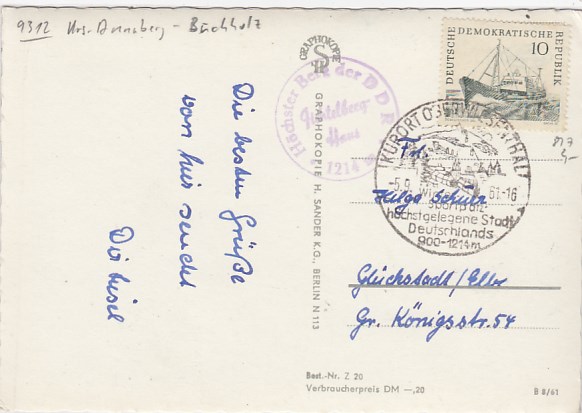 9312 Krs. Annaberg - Buchholz
Die besten Grüße
von hier sendet
GRAPHOKOPIE
GRAPHOKOPIE H. SANDER K.G., BERLIN N 113
Höchster Berg der DDR
Fichtelberg
Haus
1214
DEUTSCHE DEMOKRATISCHE REPUBLIK
10
KURORT OBERWIESENTHAL
-5.9. 61-16
höchstgelegene Stadt
Deutschlands
900-1214m
Helga
Glückstadt/Elbe
Gr. Königsstr. 54
Best.-Nr. Z 20
Verbraucherpreis DM —,20
B 8/61